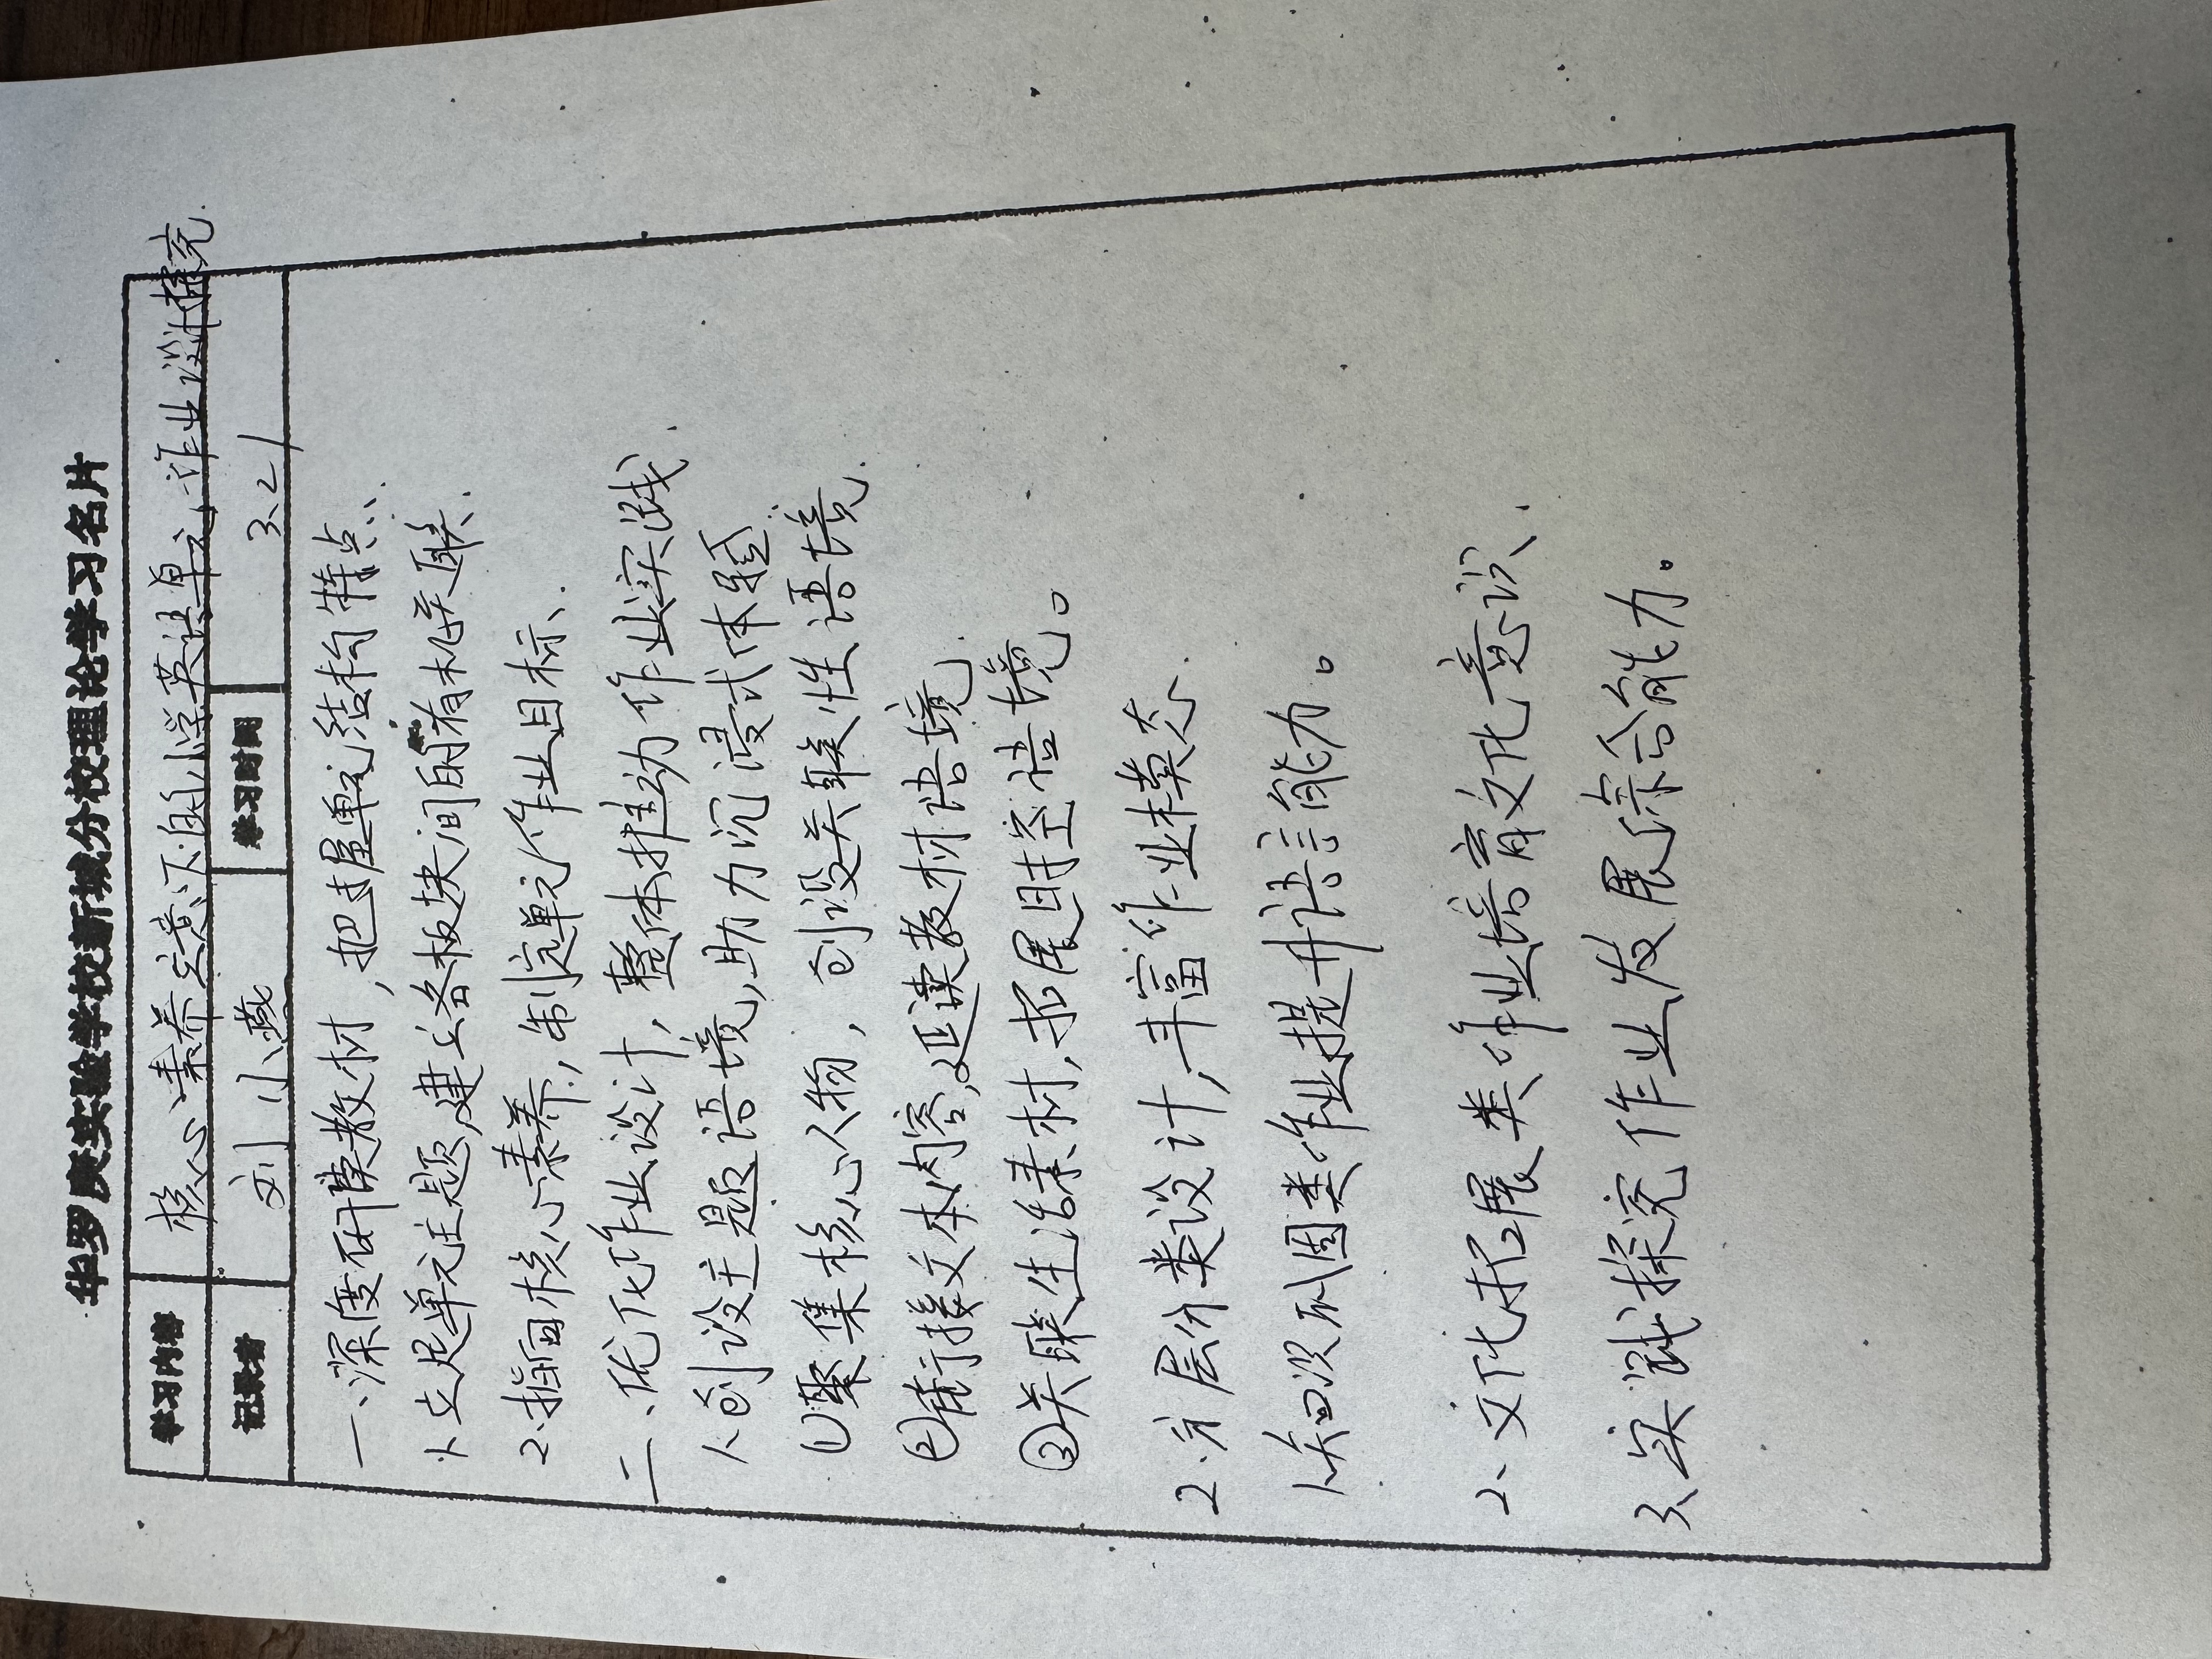 华罗庚实验学校新城分校理论学习名片
学习内容 核心素养立意下的小学英语单元作业设计探究.
记录者 刘小燕 学习时间 3.21
一、深度研读教材，把握单元结构特点.
1.立足单元主题,建立各板块间的有机关联.
2.指向核心素养,制定单元作业目标.
二、优化作业设计,整体推动作业实践.
1.创设主题语境,助力沉浸式体验
①聚集核心人物，创设关联性语境.
②衔接文本内容,延续教材语境.
③关联生活素材,拓展时空语境。
2.分层分类设计,丰富作业模态.
1.知识巩固类作业提升语言能力。
2、文化拓展类作业培育文化意识.
3、实践探究作业发展综合能力。